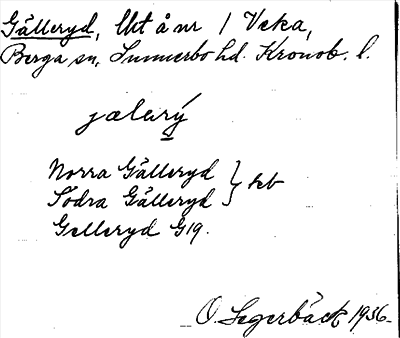 Gälleryd, lht å nr 1 Veka,
Berga sn, Sunnerbo hd. Kronob. l.
jælarý
Norra Gälleryd } teb
Södra Gälleryd
Gelleryd G19.
O. Segerbäck 1936.